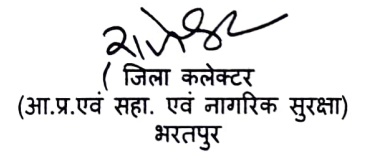 ( जिला कलेक्टर
(आ.प्र.एवं सहा. एवं नागरिक सुरक्षा)
भरतपुर